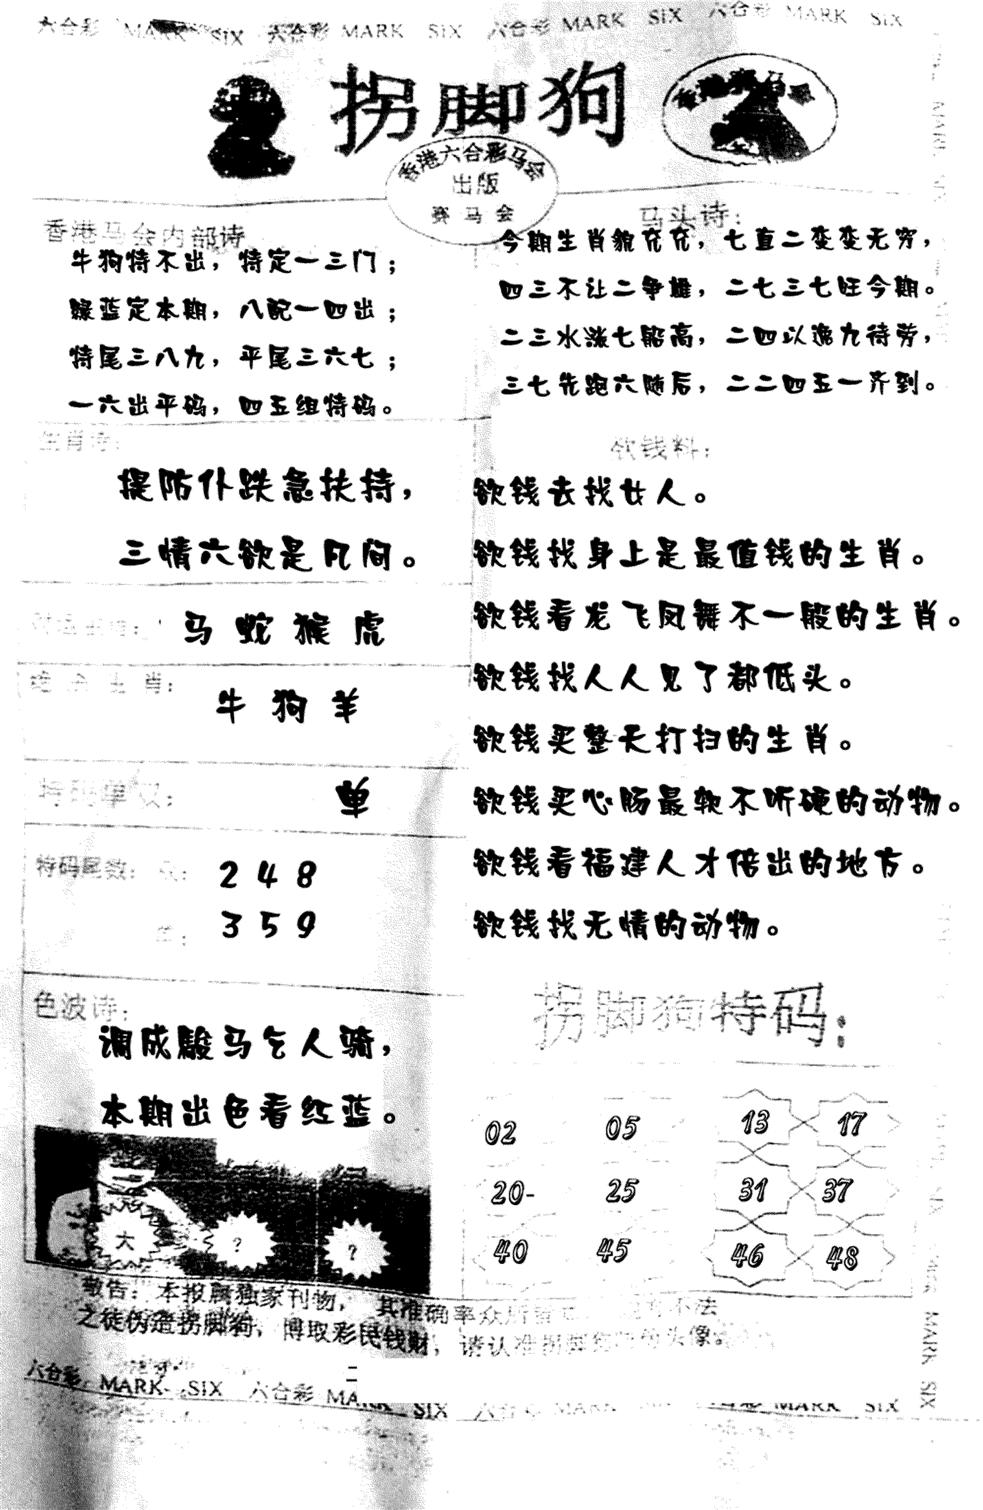 六合彩 MARK SIX 六合彩 MARK SIX 六合彩 MARK SIX 六合彩 MARK SIX
拐脚狗
香港赛马会
香港六合彩马会
出版
赛马会
香港马会内部诗
牛狗特不出，特定一三门；
绿蓝定本期，八配一四出；
特尾三八九，平尾三六七；
一六出平码，四五组特码。
马头诗：
今期生肖貌充充，七直二变变无穷，
四三不让二争雄，二七三七旺今期。
二三水涨七船高，二四以逸九待劳，
三七先跑六随后，二二四五一齐到。
生肖诗：
提防仆跌急扶持，
三情六欲是凡间。
马 蛇 猴 虎
绝杀生肖：
牛 狗 羊
特码单双：
单
特码尾数：双：
2 4 8
单：
3 5 9
色波诗：
调成骏马乞人骑，
本期出色看红蓝。
大
?
?
欲钱料：
欲钱去找女人。
欲钱找身上是最值钱的生肖。
欲钱看龙飞凤舞不一般的生肖。
欲钱找人人见了都低头。
欲钱买整天打扫的生肖。
欲钱买心肠最软不听硬的动物。
欲钱看福建人才倍出的地方。
欲钱找无情的动物。
拐脚狗特码：
02 05 13 17
20- 25 31 37
40 45 46 48
敬告：本报属独家刊物，其准确率众所 不法
之徒伪造拐脚狗，博取彩民钱财，请认准拐脚狗 头像
六合彩 MARK SIX 六合彩 MARK SIX 六合彩 MARK SIX 六合彩 MARK SIX
MARK SIX
MARK SIX